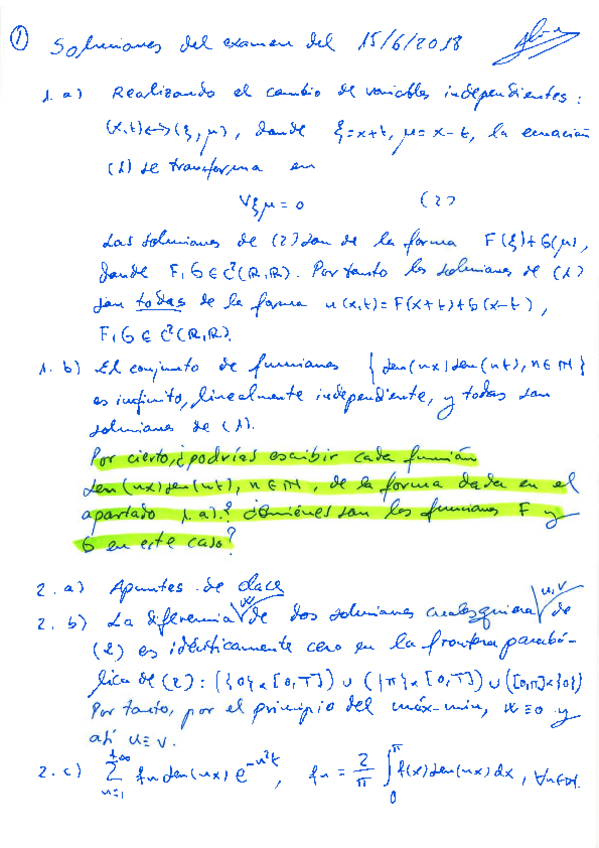 ① Soluciones del examen del 15/6/2018
1. a) Realizando el cambio de variables independientes:
(x,t)↔(ξ,μ), donde ξ=x+t, μ=x-t, la ecuación
(1) se transforma en
v_ξμ = 0 (2)
Las soluciones de (2) son de la forma F(ξ)+G(μ),
donde F, G ∈ C²(R,R). Por tanto las soluciones de (1)
son todas de la forma u(x,t)=F(x+t)+G(x-t),
F, G ∈ C²(R,R).
1. b) El conjunto de funciones {sen(nx)sen(nt), n∈N}
es infinito, linealmente independiente, y todas son
soluciones de (1).
Por cierto, ¿podrías escribir cada función
sen(nx)sen(nt), n∈N, de la forma dada en el
apartado 1.a)? ¿Quiénes son las funciones F y
G en este caso?
2. a) Apuntes de clase
2. b) La diferencia w de dos soluciones cualesquiera u,v de
(2) es idénticamente cero en la frontera parabó-
lica de (2): ({0}x[0,T]) ∪ ({π}x[0,T]) ∪ ([0,π]x{0})
Por tanto, por el principio del máx-min, w≡0 y
así u≡v.
2. c) ∑_{n=1}^{+∞} fn sen(nx) e^{-n²t}, fn = 2/π ∫_0^π f(x)sen(nx)dx, ∀n∈N.